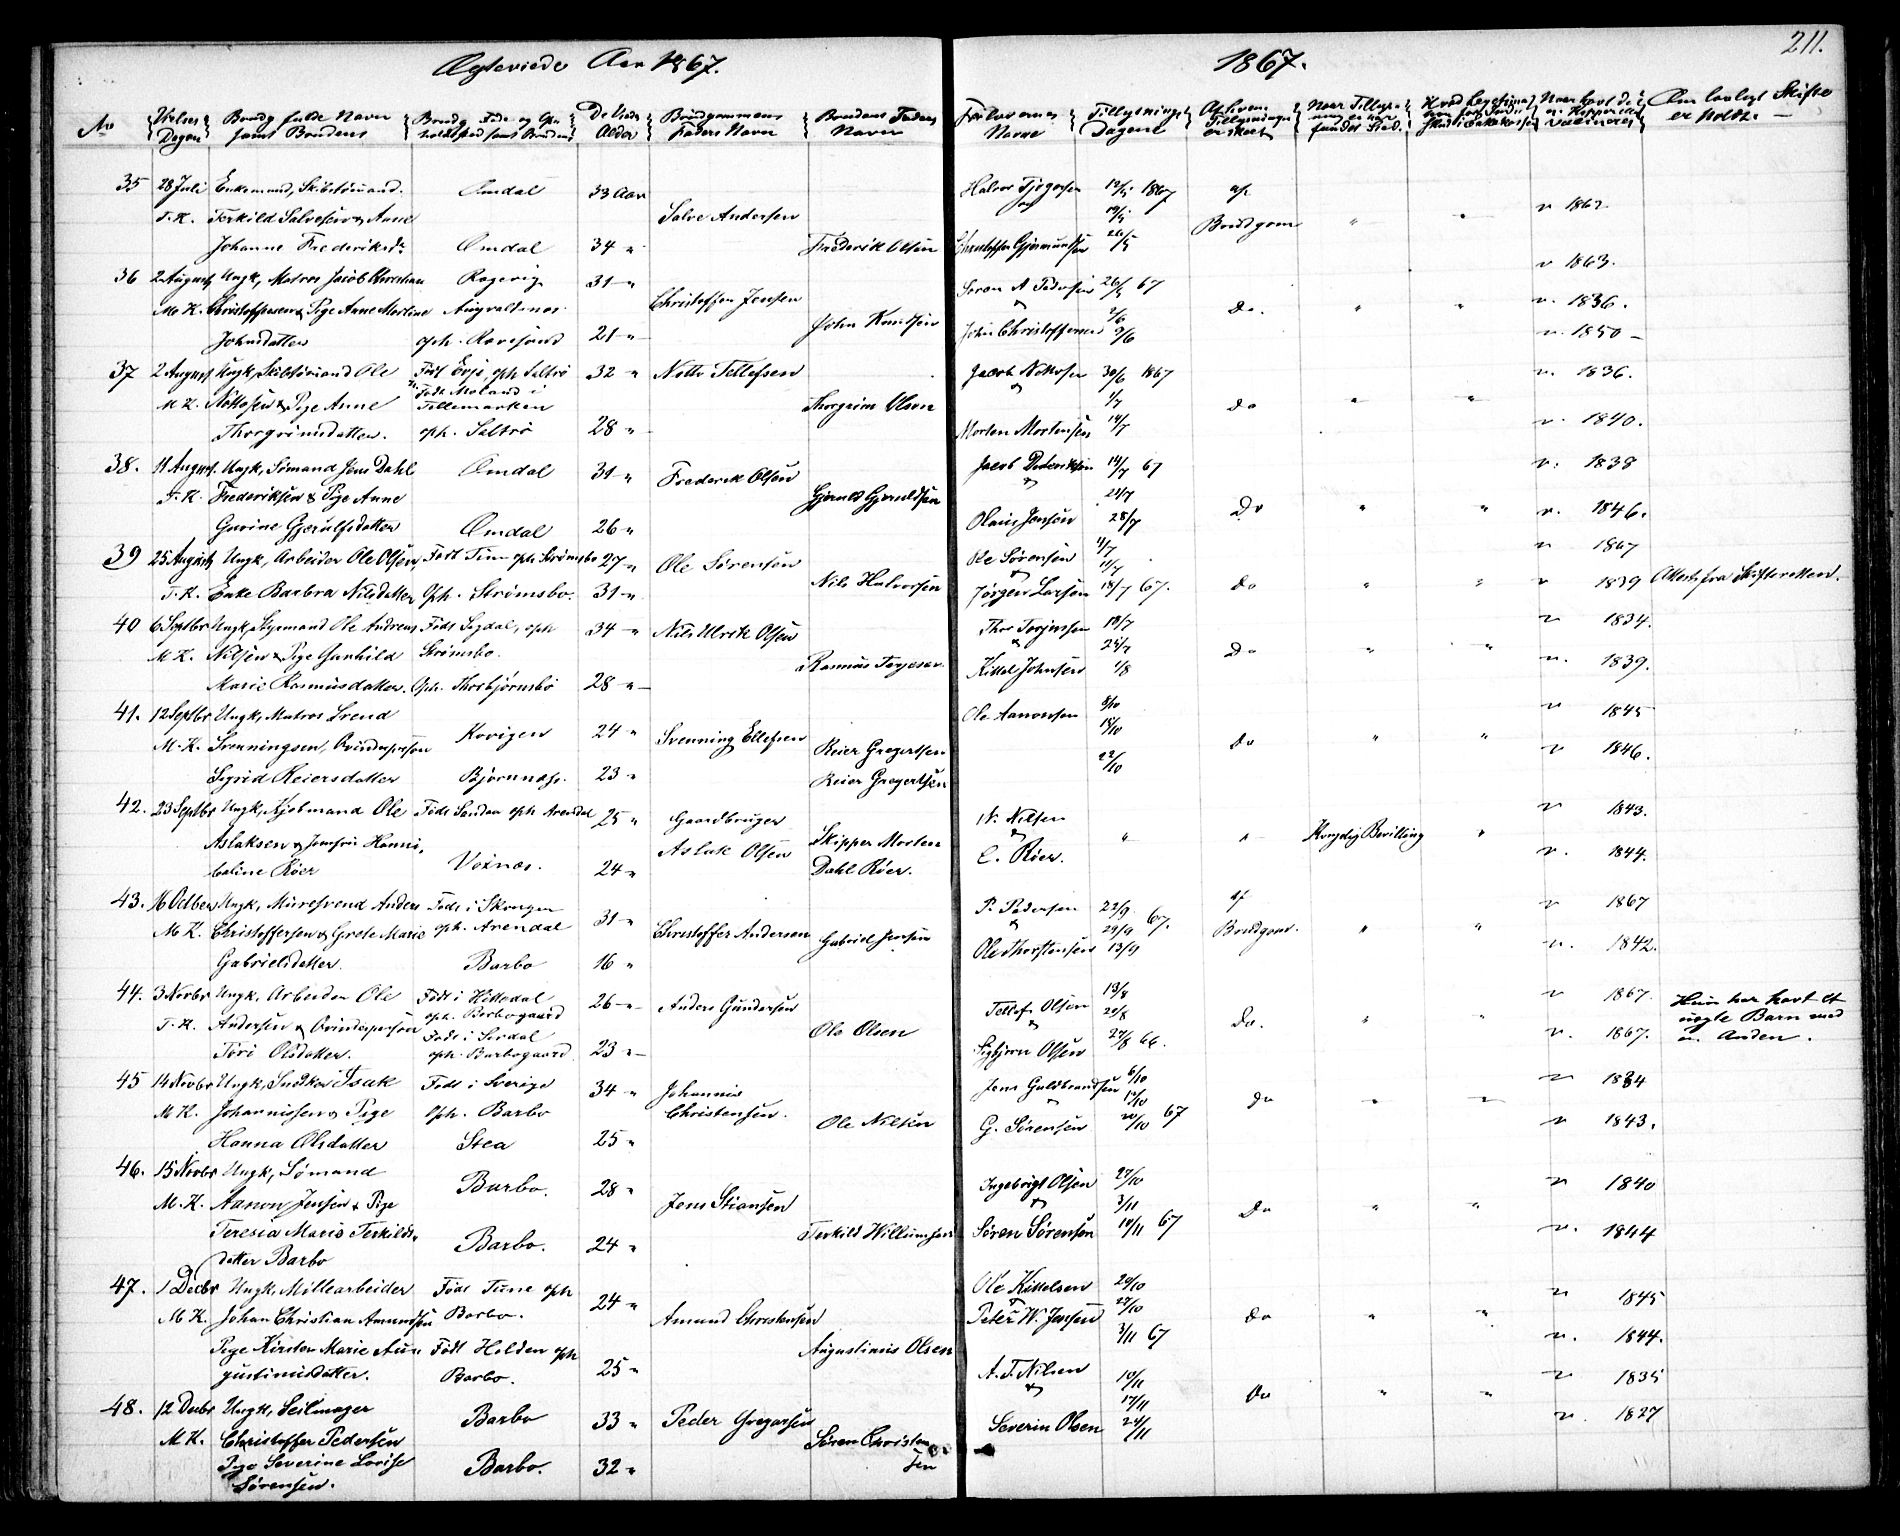 Ægteviede Aar 1867. 1867. 211.
No Vielses Dagen Brudg fulde Navn samt Brudens Brudg Føde og Op- holdsted samt Brudens De Viede Alder Brudgommens Faders Navn Brudens Faders Navn Forlovernes Navne Tillysnings Dagene Af hvem Tillysningen er skeet Naar Tillysn Om lovligt Skifte er holdt.
35 28 Juli Enkemand, Skibstømmand. Omdal 33 Aar Halvor 12/5 1867 af
T.K. Terkild Salvesen & Anne Salve Andersen 19/5 Brudgom " " v 1862
Johanne Frederiksdr Omdal 34 " Frederik Olsen Christoffer Gjermundsen 26/5
v 1863.
36 2 August Ungk, Matros Jacob Christian Ragevig 31 " Søren A Pedersen 26/5 67
M.K. Christoffersen & Pige Anne Martine Augvaldsnes Christoffer Jensen & 2/6 Do. " " v. 1836.
Johnsdatter oph. Revesand 21 " John Knudsen John Christoffersen 9/6 v. 1850
37 2 August Ungk, Skibstømand Ole Født Evje, oph Saltrø 32 " Notto Tellefsen Jacob Nottosen 30/6 1867 v. 1836.
M.K. Nottosen & Pige Anne Født Moland i Tellemarken Thorgrim Olsen & 7/7 do " "
Thorgrimsdatter. oph. Saltrø 28 " Morten Mortensen 14/7 v. 1840.
38. 11 August Ungk, Sømand Jens Dahl Omdal 31 " Frederik Olsen Jacob Dideriksen 14/7 67 v. 1838
T.K. Frederiksen & Pige Anne & 21/7
Gurine Gjerulfsdatter Omdal 26 " Olaus Jensen 28/7 Do " " v. 1846.
39 25 August Ungk, Arbeider Ole Olsen, Født Tinn oph Strømsbo 27 " Ole Sørensen Ole Sørensen 4/7 v 1867
T.K. Enke Barbra Nilsdatter Oph. Strømsbo. 31 " Nils Halvorsen & Jørgen Larsen 11/7 18/7 67. do " " v 1839 Attest fra Skifteretten.
40 6 Septbr Ungk, Styrmand Ole Andreas Født Sigdal, oph 34 " Nils Ulrik Olsen Thor Torjusen 18/7 v 1834.
M.K. Nilsen & Pige Gunhild Strømsbo. Rasmus Terjesen & 25/7 Do " " v. 1839.
Marie Rasmusdatter. Oph. Thorbjørnsbo 28 " Kittel Johnsen 1/8
41. 12 Septbr Ungk, Matros Svend Ole Aanonsen 8/10 v 1845
M.K. Svenningsen, Qvindeperson Kovigen 24 " Svenning Ellefsen Reier Gregertsen 15/10 do " " v 1846.
Sigrid Reiersdatter Bjørnnæs. 23 " Reier Gregertsen 22/10
42. 23 Septbr Ungk, Kjøbmand Ole Født Landvig oph Arendal 25 " Gaardbruger N. Nilsen v 1843.
Aslaksen & Jomfru Hanni, Aslak Olsen Skipper Morten & " " Kongelig Bevilling "
baline Röer Voxnæs. 24 " Dahl Röer. C. Röer. v. 1844.
43. 16 Octber Ungk, Murersvend Anders Født i Skougen 31 " P. Pedersen 22/9 af v 1867
M.K. Christoffersen & Grete Marie oph. Arendal Christoffer Andersen Gabriel Jensen & 29/9 67. Brudgom. " "
Gabrielsdatter. Barbo 16 " Ole Thorstensen v. 1842.
44. 3 Novbr Ungk. Arbeider Ole Født i Hitterdal 26 " Anders Gundersen Tellef Olsen 13/8 v 1867. Hun har havt et
T.K. Andersen & Qvindeperson oph. Barbogaard Ole Olsen & 20/8 Do. " " uægte Barn med
Tori Olsdatter. Født i Sirdal oph. Barbogaard 23 " Sigbjørn Olsen 27/8 66. v. 1867. en Anden.
45 14 Novbr Ungk, Snedker Isak Født i Sverige 34 " Johannis Jens Guldbrandsen 6/10 v 1834
M.K. Johannissen & Pige Oph. Barbo Christensen. & 13/10 do " "
Hanna Olsdatter Stea 25 " Ole Nilsen G. Sørensen 20/10 67 v 1843.
46. 15 Novbr Ungk, Sømand Ingebrigt Olsen 27/10 v 1840
M.K. Aanon Jensen & Pige Barbo. 28 " Jens Stiansen & 3/11 Do " "
Teresia Marie Terkilds- Barbo. 24 " Terkild Willumsen Søren Sørensen 10/11 67 v. 1844
datter Barbo
47. 1 Decbr Ungk, Møllearbeider Født Tune oph 24 " Ole Kittelsen 20/10 v 1845
M.K. Johan Christian Amundsen Barbo. Amund Christensen & Peter W. Jensen 27/10 do " "
Pige Kirsten Marie Au- Født Holden oph 25 " Augustinus Olsen 3/11 67 v. 1844.
gustinusdatter. Barbo.
48. 12 Decbr Ungk, Seilmager Barbo 33 " Peder Gregersen A. T. Nilsen 10/11 v 1835
M.K. Christoffer Pedersen & 17/11 do " "
Pige Severine Lovise Barbo. 32 " Søren Christensen Severin Olsen 24/11 v. 1827
Sørensen.